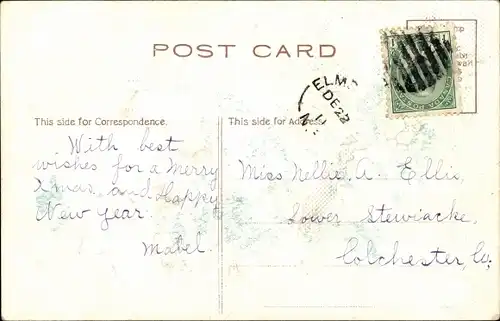 POST CARD
ELM
DE 23
This side for Correspondence.
This side for Address.
With best
wishes for a Merry
Xmas and Happy
New year.
Mabel.
Miss Nellie. A. Ellis,
Lower Stewiacke,
Colchester, Co.